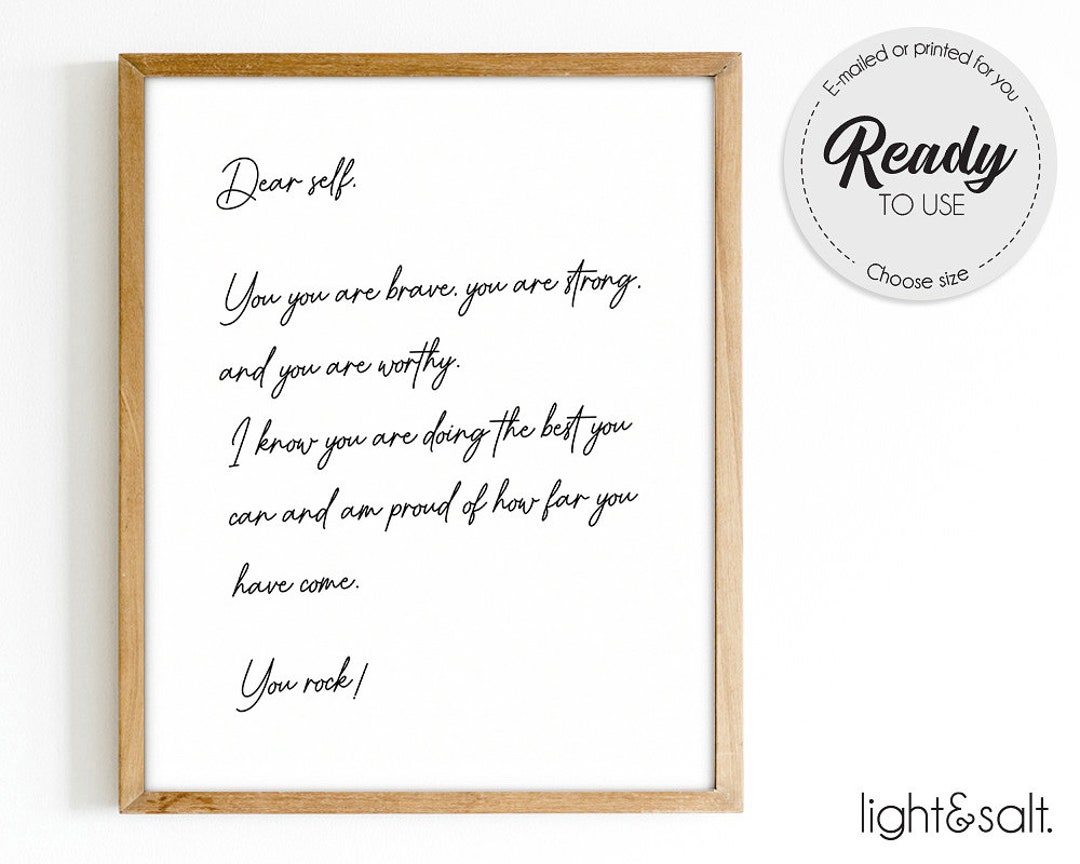 Dear self.
You you are brave. you are strong.
and you are worthy.
I know you are doing the best you
can and am proud of how far you
have come.
You rock!
E-mailed or printed for you
Ready
TO USE
Choose size
light&salt.